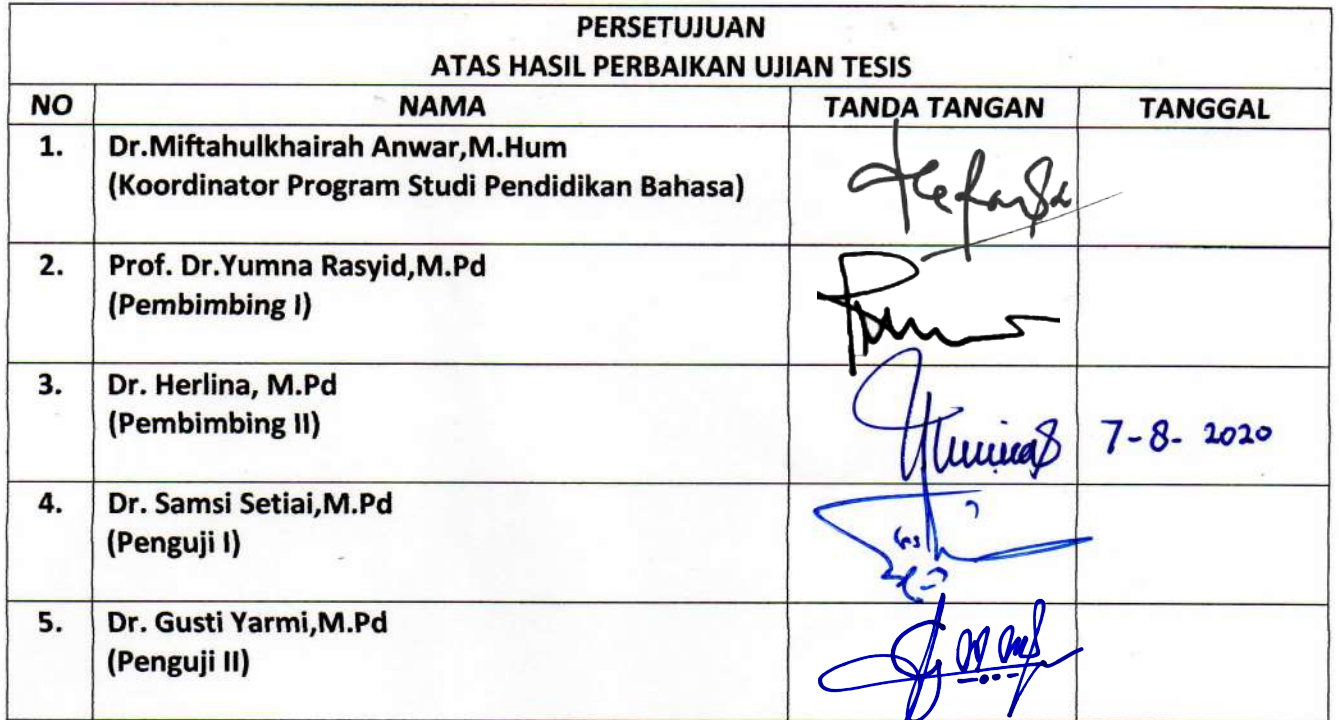 PERSETUJUAN
ATAS HASIL PERBAIKAN UJIAN TESIS
NO NAMA TANDA TANGAN TANGGAL
1. Dr.Miftahulkhairah Anwar,M.Hum
(Koordinator Program Studi Pendidikan Bahasa)
2. Prof. Dr.Yumna Rasyid,M.Pd
(Pembimbing I)
3. Dr. Herlina, M.Pd
(Pembimbing II)
7-8- 2020
4. Dr. Samsi Setiai,M.Pd
(Penguji I)
5. Dr. Gusti Yarmi,M.Pd
(Penguji II)